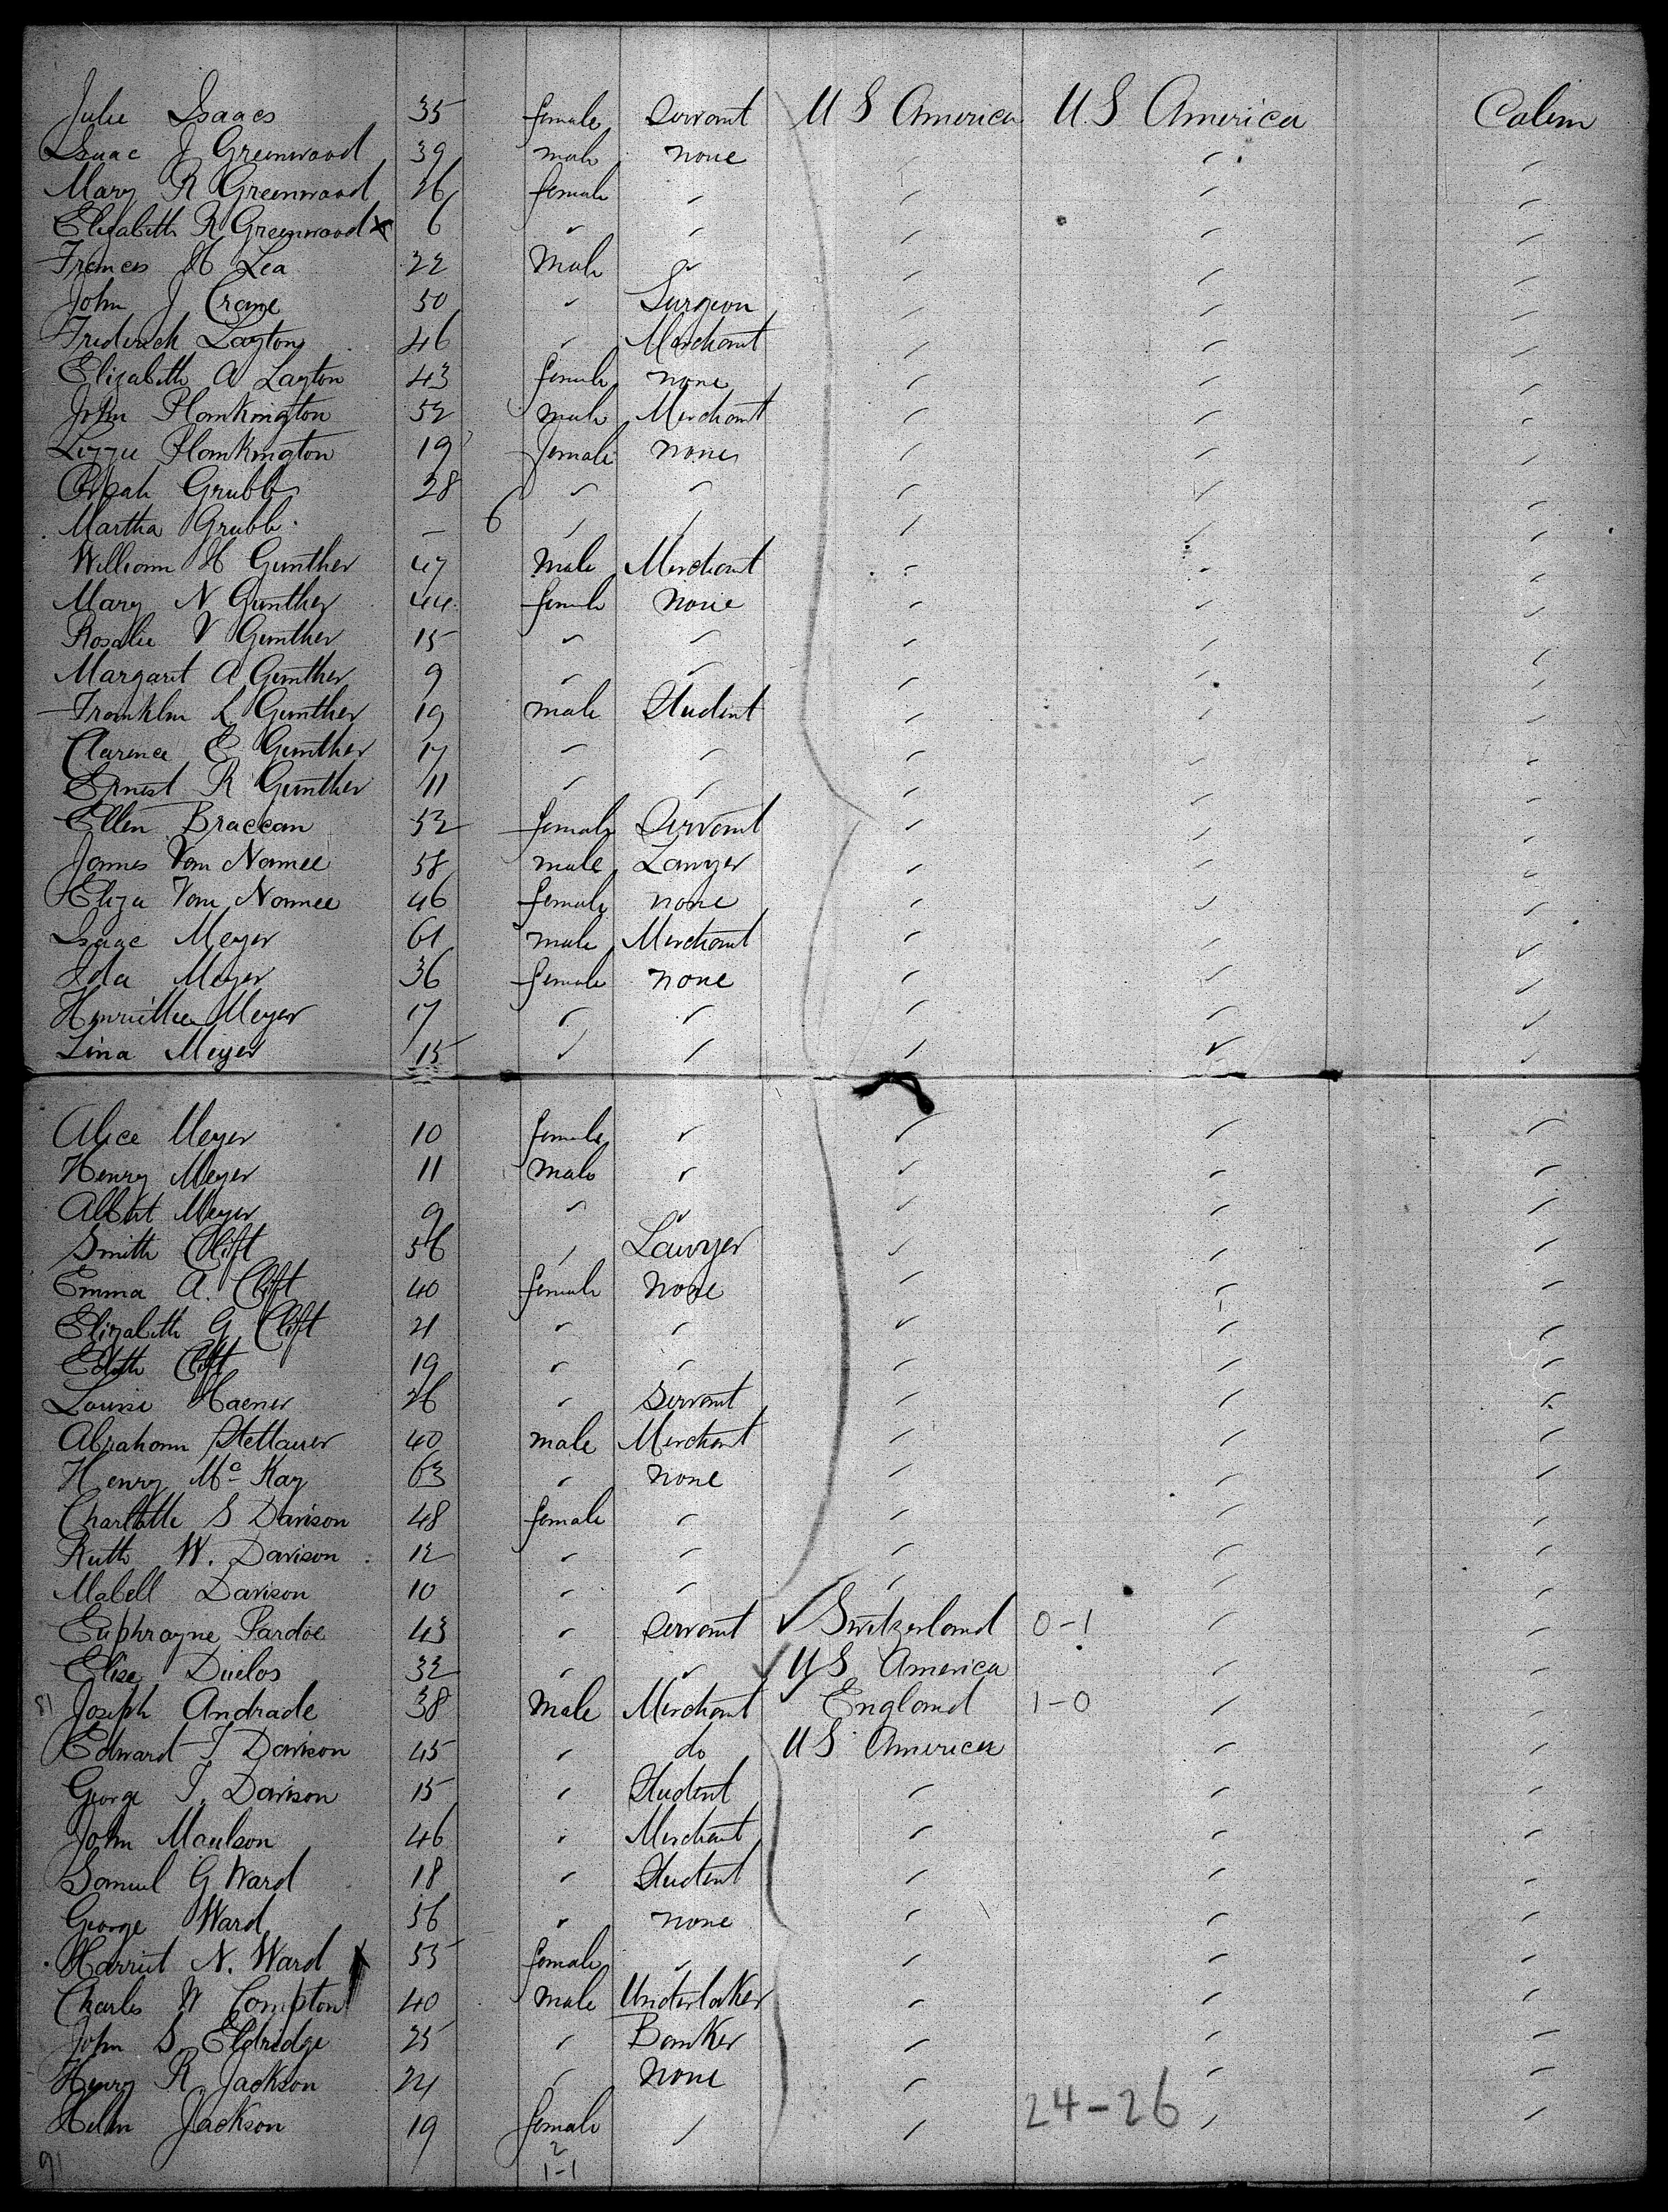 Julie Isaacs 35 female Servant U S America U.S America Cabin
Isaac J Greenwood 39 male none ✓ ✓ ✓
Mary R Greenwood 26 female ✓ ✓ ✓ ✓
Elizabeth R Greenwood x 6 ✓ ✓ ✓ ✓ ✓
Frances H Lea 22 Male ✓ ✓ ✓ ✓
John J Crane 50 ✓ Surgeon ✓ ✓ ✓
Frederick Layton 46 ✓ Merchant ✓ ✓ ✓
Elizabeth A Layton 43 female none ✓ ✓ ✓
John Plankington 52 male Merchant ✓ ✓ ✓
Lizzie Plankington 19 female none ✓ ✓ ✓
Grubb 28 ✓ ✓ ✓ ✓ ✓
Martha Grubb – 6 ✓ ✓ ✓ ✓ ✓
William H Gunther 47 male Merchant ✓ ✓ ✓
Mary N Gunther 44 female none ✓ ✓ ✓
Rosalie V Gunther 15 ✓ ✓ ✓ ✓ ✓
Margaret A Gunther 9 ✓ ✓ ✓ ✓ ✓
Franklin L Gunther 19 male Student ✓ ✓ ✓
Clarence E Gunther 17 ✓ ✓ ✓ ✓ ✓
Ernest R Gunther 11 ✓ ✓ ✓ ✓ ✓
Ellen Braccan 52 female Servant ✓ ✓ ✓
James Van Namee 58 male Lawyer ✓ ✓ ✓
Eliza Van Namee 46 female none ✓ ✓ ✓
Isaac Meyer 61 male Merchant ✓ ✓ ✓
Ida Meyer 36 female none ✓ ✓ ✓
Henriethe Meyer 17 ✓ ✓ ✓ ✓ ✓
Lina Meyer 15 ✓ ✓ ✓ ✓ ✓
Alice Meyer 10 female ✓ ✓ ✓ ✓
Henry Meyer 11 male ✓ ✓ ✓ ✓
Albert Meyer 9 ✓ ✓ ✓ ✓ ✓
Smith Clift 56 ✓ Lawyer ✓ ✓ ✓
Emma A. Clift 40 female none ✓ ✓ ✓
Elizabeth G Clift 21 ✓ ✓ ✓ ✓ ✓
Edith Clift 19 ✓ ✓ ✓ ✓ ✓
Louise Haener 26 ✓ Servant ✓ ✓ ✓
Abraham Stettauer 40 male Merchant ✓ ✓ ✓
Henry Mc Kay 63 ✓ none ✓ ✓ ✓
Charlotte S Davison 48 female ✓ ✓ ✓ ✓
Ruth W. Davison 12 ✓ ✓ ✓ ✓ ✓
Mabell Davison 10 ✓ ✓ ✓ ✓ ✓
Euphrayne Pardoe 43 ✓ Servant ✓ Switzerland 0-1 ✓ ✓
Elise Duclos 32 ✓ ✓ ✓ U S America ✓ ✓
81 Joseph Andrade 38 Male Merchant England 1-0 ✓ ✓
Edward T Davison 45 ✓ do U S America ✓ ✓
George T. Davison 15 ✓ Student ✓ ✓ ✓
John Moulson 46 ✓ Merchant ✓ ✓ ✓
Samuel G Ward 18 ✓ Student ✓ ✓ ✓
George Ward 56 ✓ none ✓ ✓ ✓
Harriet N. Ward x 55 female ✓ ✓ ✓ ✓
Charles W Compton 40 male Undertaker ✓ ✓ ✓
John S. Eldridge 25 ✓ Banker ✓ ✓ ✓
Henry R. Jackson 24 ✓ none ✓ ✓ ✓
Helen Jackson 19 female ✓ ✓ 24-26 ✓ ✓
2
91 1-1